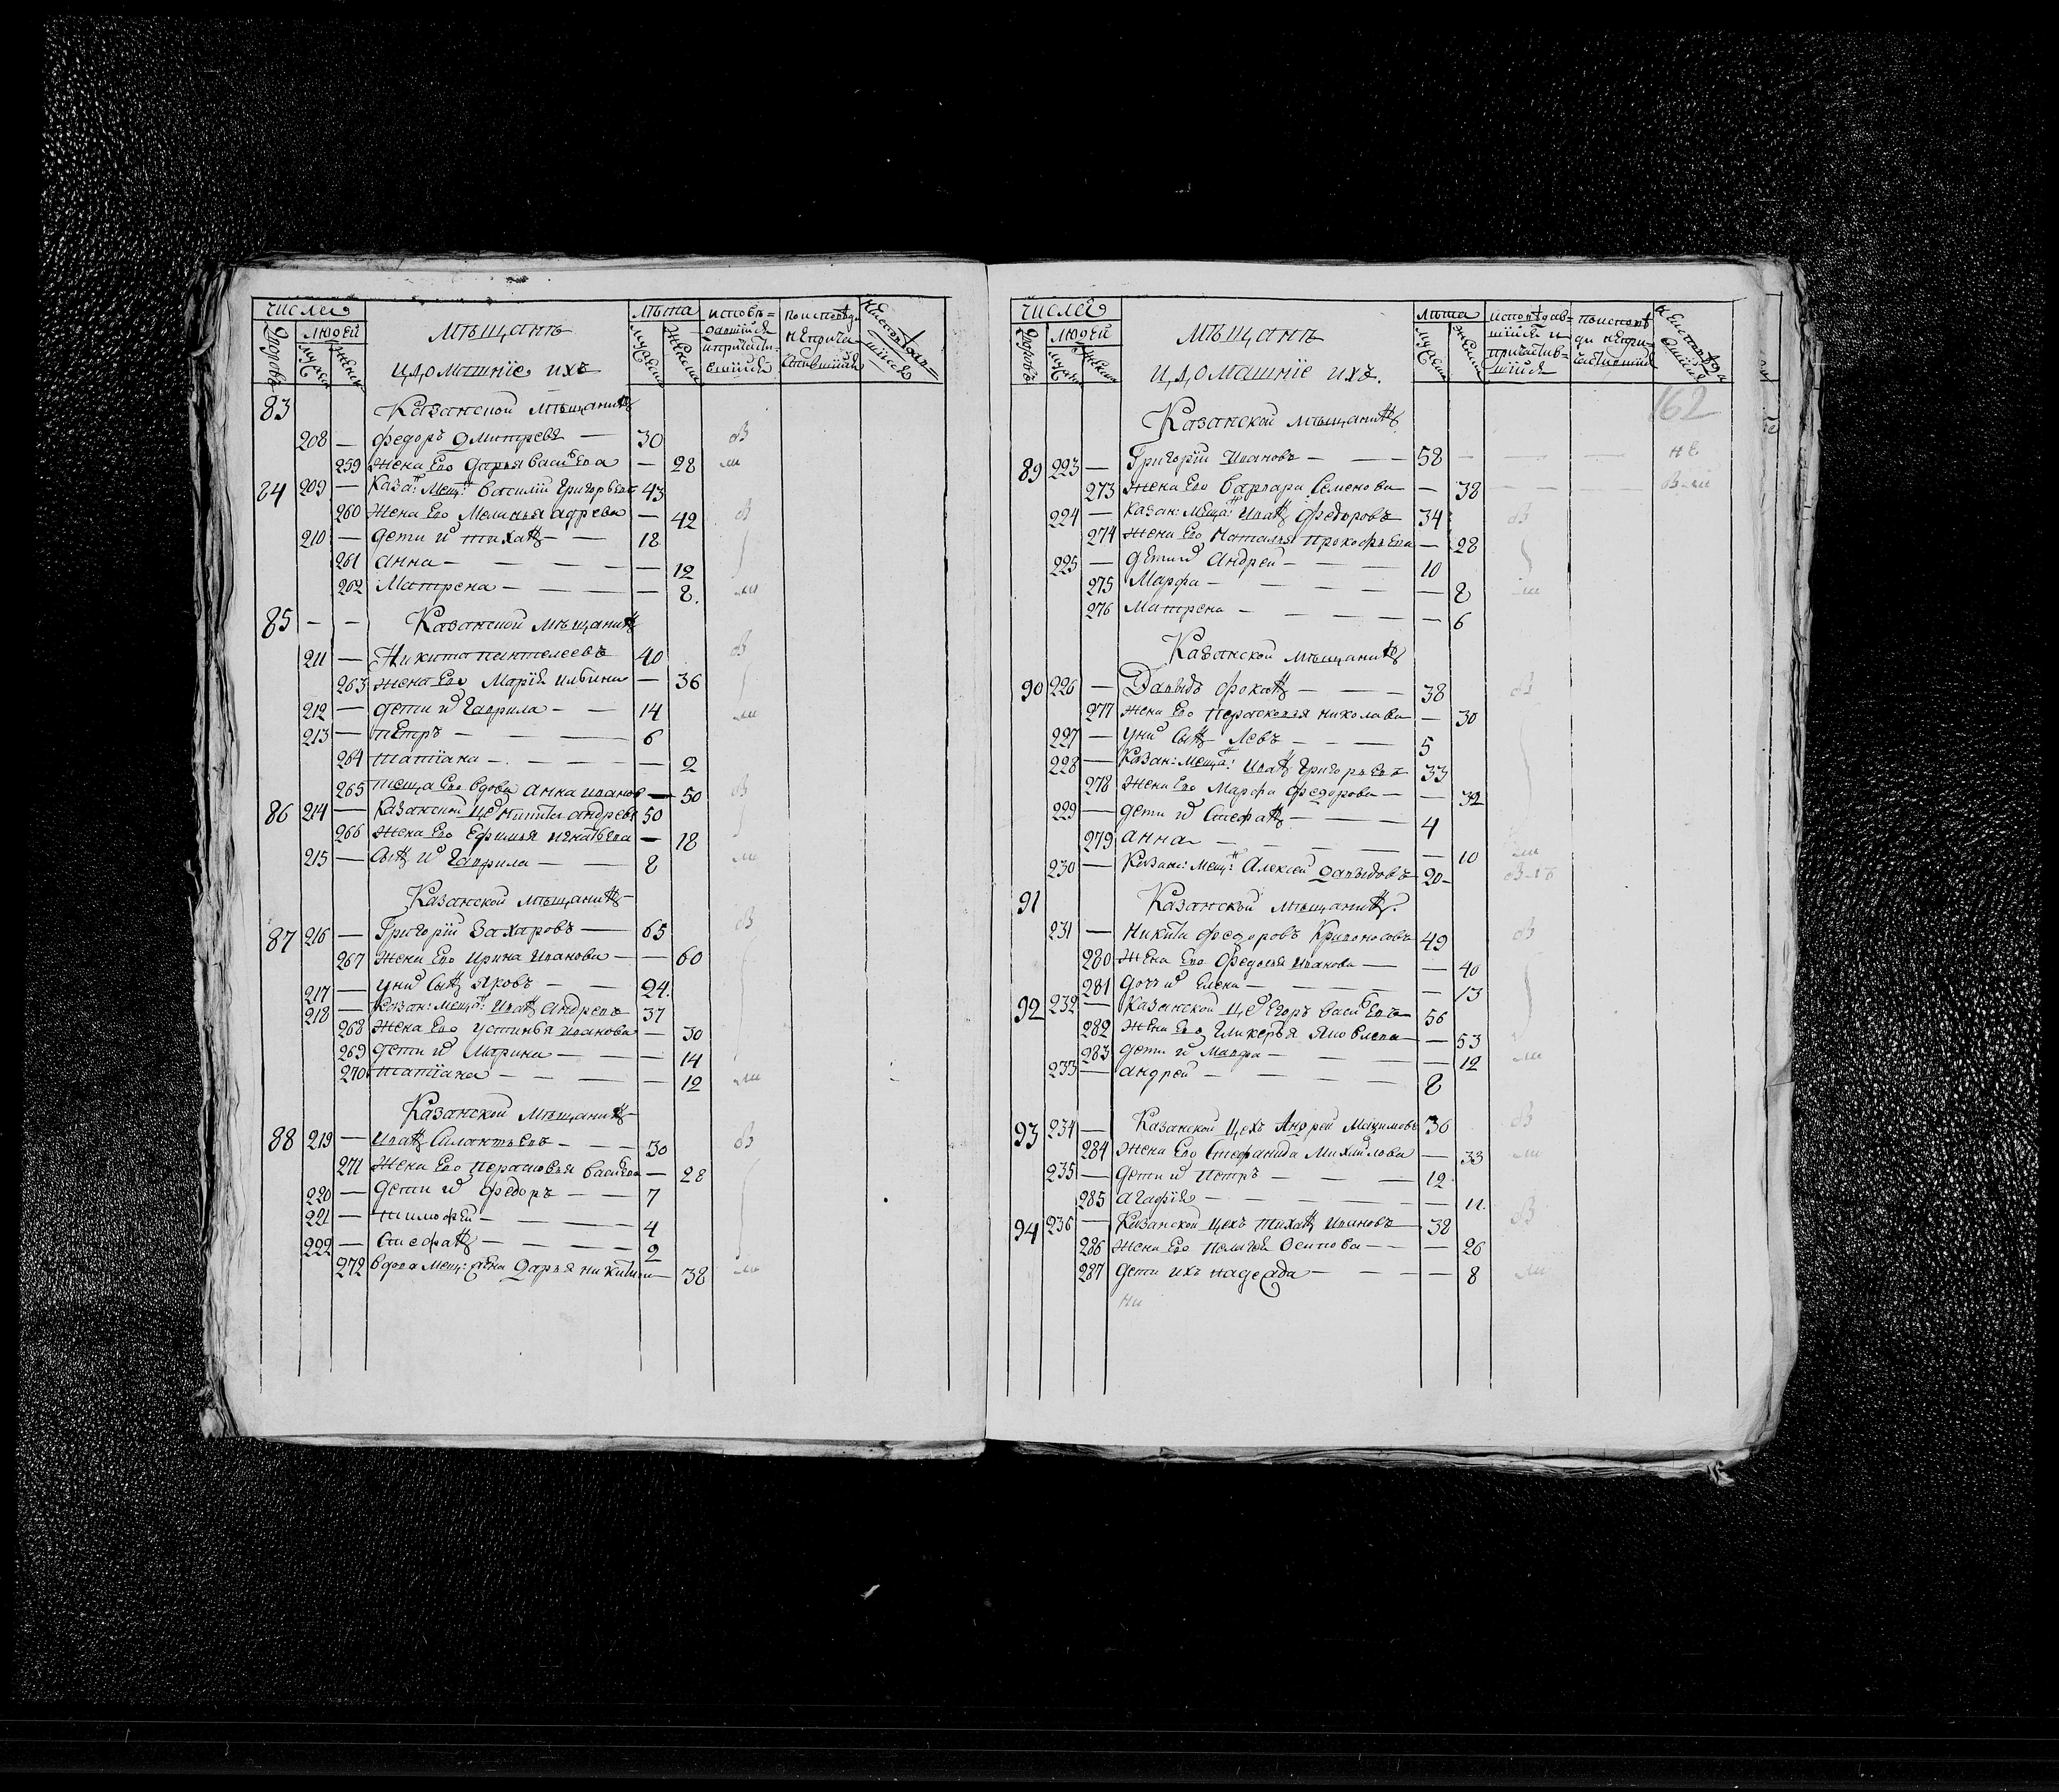 числа
дворовъ
людей
мужеск
женск
мѣщанъ
идомашнїе ихъ
лѣта
мужеска
женска
исповѣ=
давшїися
ипричасти
вшїися
поисповѣди
непричаст
ившїися
83 Казанской мѣщанинъ
208 — федоръ Дмитревъ — 30
259 жена Его дарья васильева — 28
84 209 — Каза: мещ: василий Григорьевъ 43
260 жена Его Меланья адрева — 42
210 — дети и тиханъ — — 18
261 анна — — — — — 12
262 Матрена — — — — 8.
85 — — Казанской мѣщанинъ
211 — Никита пантелеевъ 40
263 жена Его Марїя ильина — 36
212 — дети и Гаврила — — 14
213 — петръ — — — — 6
264 татїана — — — — 2
265 теща Его вдова анна иванов — 50
86 214 — Казанской це Никита андревъ 50
266 жена Его Ефимья игнатьева — 18
215 — сынъ и Гаврила — — 8
Казанской мѣщанинъ
87 216 — Григорїй Захаровъ — 65
267 жена Его Ирина Иванова — — 60
217 — унии сынъ яковъ — — 24.
218 — Казан: мещ: Иванъ андревъ 37
268 жена Его устинья иванова — 30
269 дети и Марина — — — 14
270 татїана — — — — 12
Казанской мѣщанинъ
88 219 — иванъ Силантьевъ — — — 30
271 жена Его Перасковья васильева — 28
220 — дети и федоръ — — 7
221 — тимофей — — — — 4
222 — стефанъ — — — — 2
272 вдова мещ: Дарья никитина — 38
числа
дворовъ
людей
мужеск
женск
мѣщанъ
идомашнїе ихъ.
лѣта
мужеска
женска
исповѣдав=
шїися и
причастив=
шїися
поисповѣ
ди непри=
частившїи
неисповѣда
вшїися
162
Казанской мѣщанинъ
89 223 — Григорїй Ивановъ — — — 58 — — — не
273 жена Его варвара Семенова — 38
224 — Казан: мѣща: Иванъ Федоровъ 34
274 жена Его Наталья прокофьева — 28
225 — дети и Андрей — — — 10
275 Марфа — — — — — 8
276 Матрена — — — — — 6
Казанской мѣщанинъ
90 226 — Давыдъ фокинъ — — — 38
277 жена Его перасковья николава — 30
227 — унии сынъ Левъ — — — 5
228 — Казан: меща: Иванъ Григорьевъ 33
278 жена Его Марфа федорова — — 32
229 — дети и Стефанъ — — — 4
279 анна — — — — — 10
230 — Казан: мещ: Алексей давыдовъ 20
91 Казанской мѣщанинъ.
231 — Никита федоровъ Кривоносовъ 49
280 жена Его Федосья Иванова — — 40
281 дочь и Елена — — — — 13
92 232 — Казанской це Егоръ васильевъ 56
282 жена Его Гликерья Яковлева — 53
283 дети и Марфа — — — — 12
233 — андрей — — — — 8
93 234 — Казанской цехъ Андрей Максимовъ 36
284 жена Его Стефанида Михайлова — 33
235 — дети и Петръ — — — 12
285 агафїя — — — — — 11.
94 236 — Казанской цехъ тиханъ Ивановъ 38
286 жена Его пелагея Осипова — — — 26
287 дети ихъ надежда — — — — 8
ни